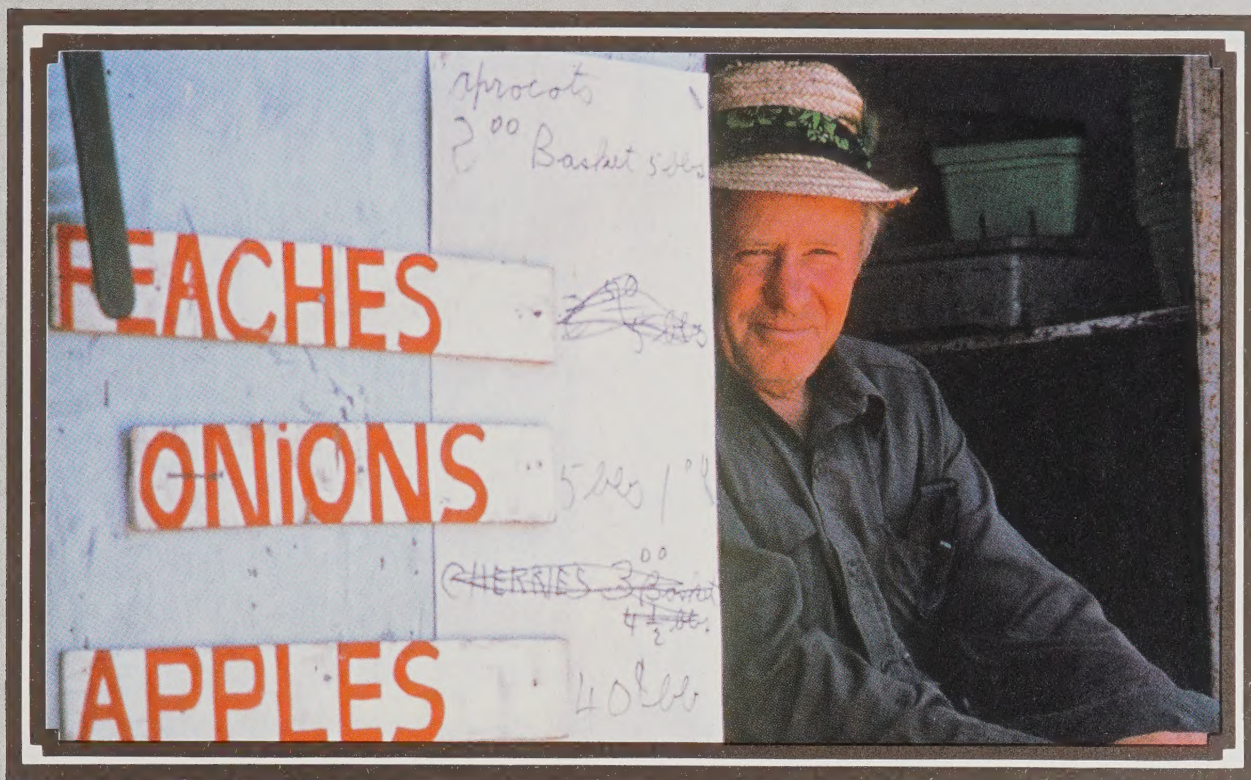 aprocots
2 00 Basket 5 lbs
PEACHES
50
5 lbs
ONiONS 5 lbs 1 00
CHERRIES 3 00 Basket
4 1/2 lbs.
APPLES 40¢ lb